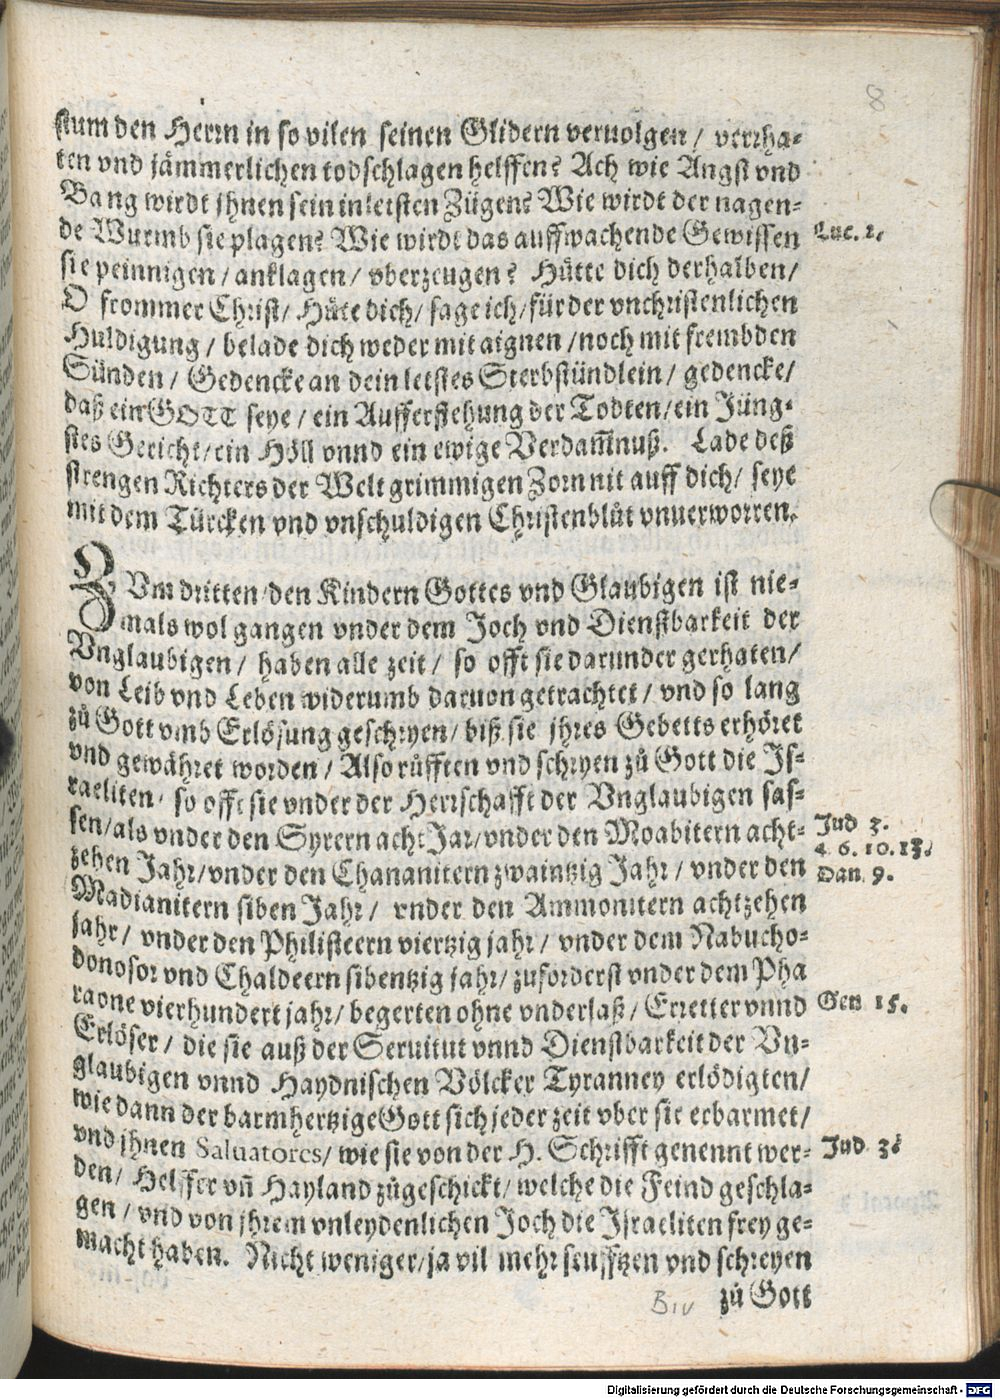 8
stum den Herrn in so vilen seinen Glidern veruolgen / verrha-
ten vnd jämmerlichen todschlagen helffen? Ach wie Angst vnd
Bang wirdt jhnen sein in letsten Zügen? Wie wirdt der nagen-
de Wurmb sie plagen? Wie wirdt das auffwachende Gewissen
Luc. 1.
sie peinnigen / anklagen / vberzeugen? Hütte dich derhalben /
O frommer Christ / Hüte dich / sage ich / für der vnchristenlichen
Huldigung / belade dich weder mit aignen / noch mit frembden
Sünden / Gedencke an dein letstes Sterbstündlein / gedencke /
daß ein GOTT seye / ein Aufferstehung der Todten / ein Jüng-
stes Gericht / ein Höll vnnd ein ewige Verdam̄nuß. Lade deß
strengen Richters der Welt grimmigen Zorn nit auff dich / seye
mit dem Türcken vnd vnschuldigen Christenblůt vnuerworren.
ZVm dritten den Kindern Gottes vnd Glaubigen ist nie-
mals wol gangen vnder dem Joch vnd Dienstbarkeit der
Vnglaubigen / haben alle zeit / so offt sie darunder gerhaten /
von Leib vnd Leben widerumb daruon getrachtet / vnd so lang
zů Gott vmb Erlösung geschryen / biß sie jhres Gebetts erhöret
vnd gewähret worden / Also růfften vnd schryen zů Gott die Is-
raeliten / so offt sie vnder der Herrschafft der Vnglaubigen sas-
sen / als vnder den Syrern acht Jar / vnder den Moabitern acht-
Jud 3.
4. 6. 10. 13.
zehen Jahr / vnder den Chananitern zwaintzig Jahr / vnder den
Dan. 9.
Madianitern siben Jahr / vnder den Ammonitern achtzehen
jahr / vnder den Philisteern viertzig jahr / vnder dem Nabucho-
donosor vnd Chaldeern sibentzig jahr / zuforderst vnder dem Pha
raone vierhundert jahr / begerten ohne vnderlaß / Erretter vnnd
Gen 15.
Erlöser / die sie auß der Seruitut vnnd Dienstbarkeit der Vn-
glaubigen vnnd Haydnischen Völcker Tyranney erlödigten /
wie dann der barmhertzige Gott sich jeder zeit vber sie erbarmet /
vnd jhnen Saluatores / wie sie von der H. Schrifft genennt wer-
Jud 3.
den / Helffer vn̄ Hayland zůgeschickt / welche die Feind geschla-
gen / vnd von jhrem vnleydenlichen Joch die Israeliten frey ge-
macht haben. Nicht weniger / ja vil mehr seufftzen vnd schreyen
B iv
zů Gott
Digitalisierung gefördert durch die Deutsche Forschungsgemeinschaft - DFG